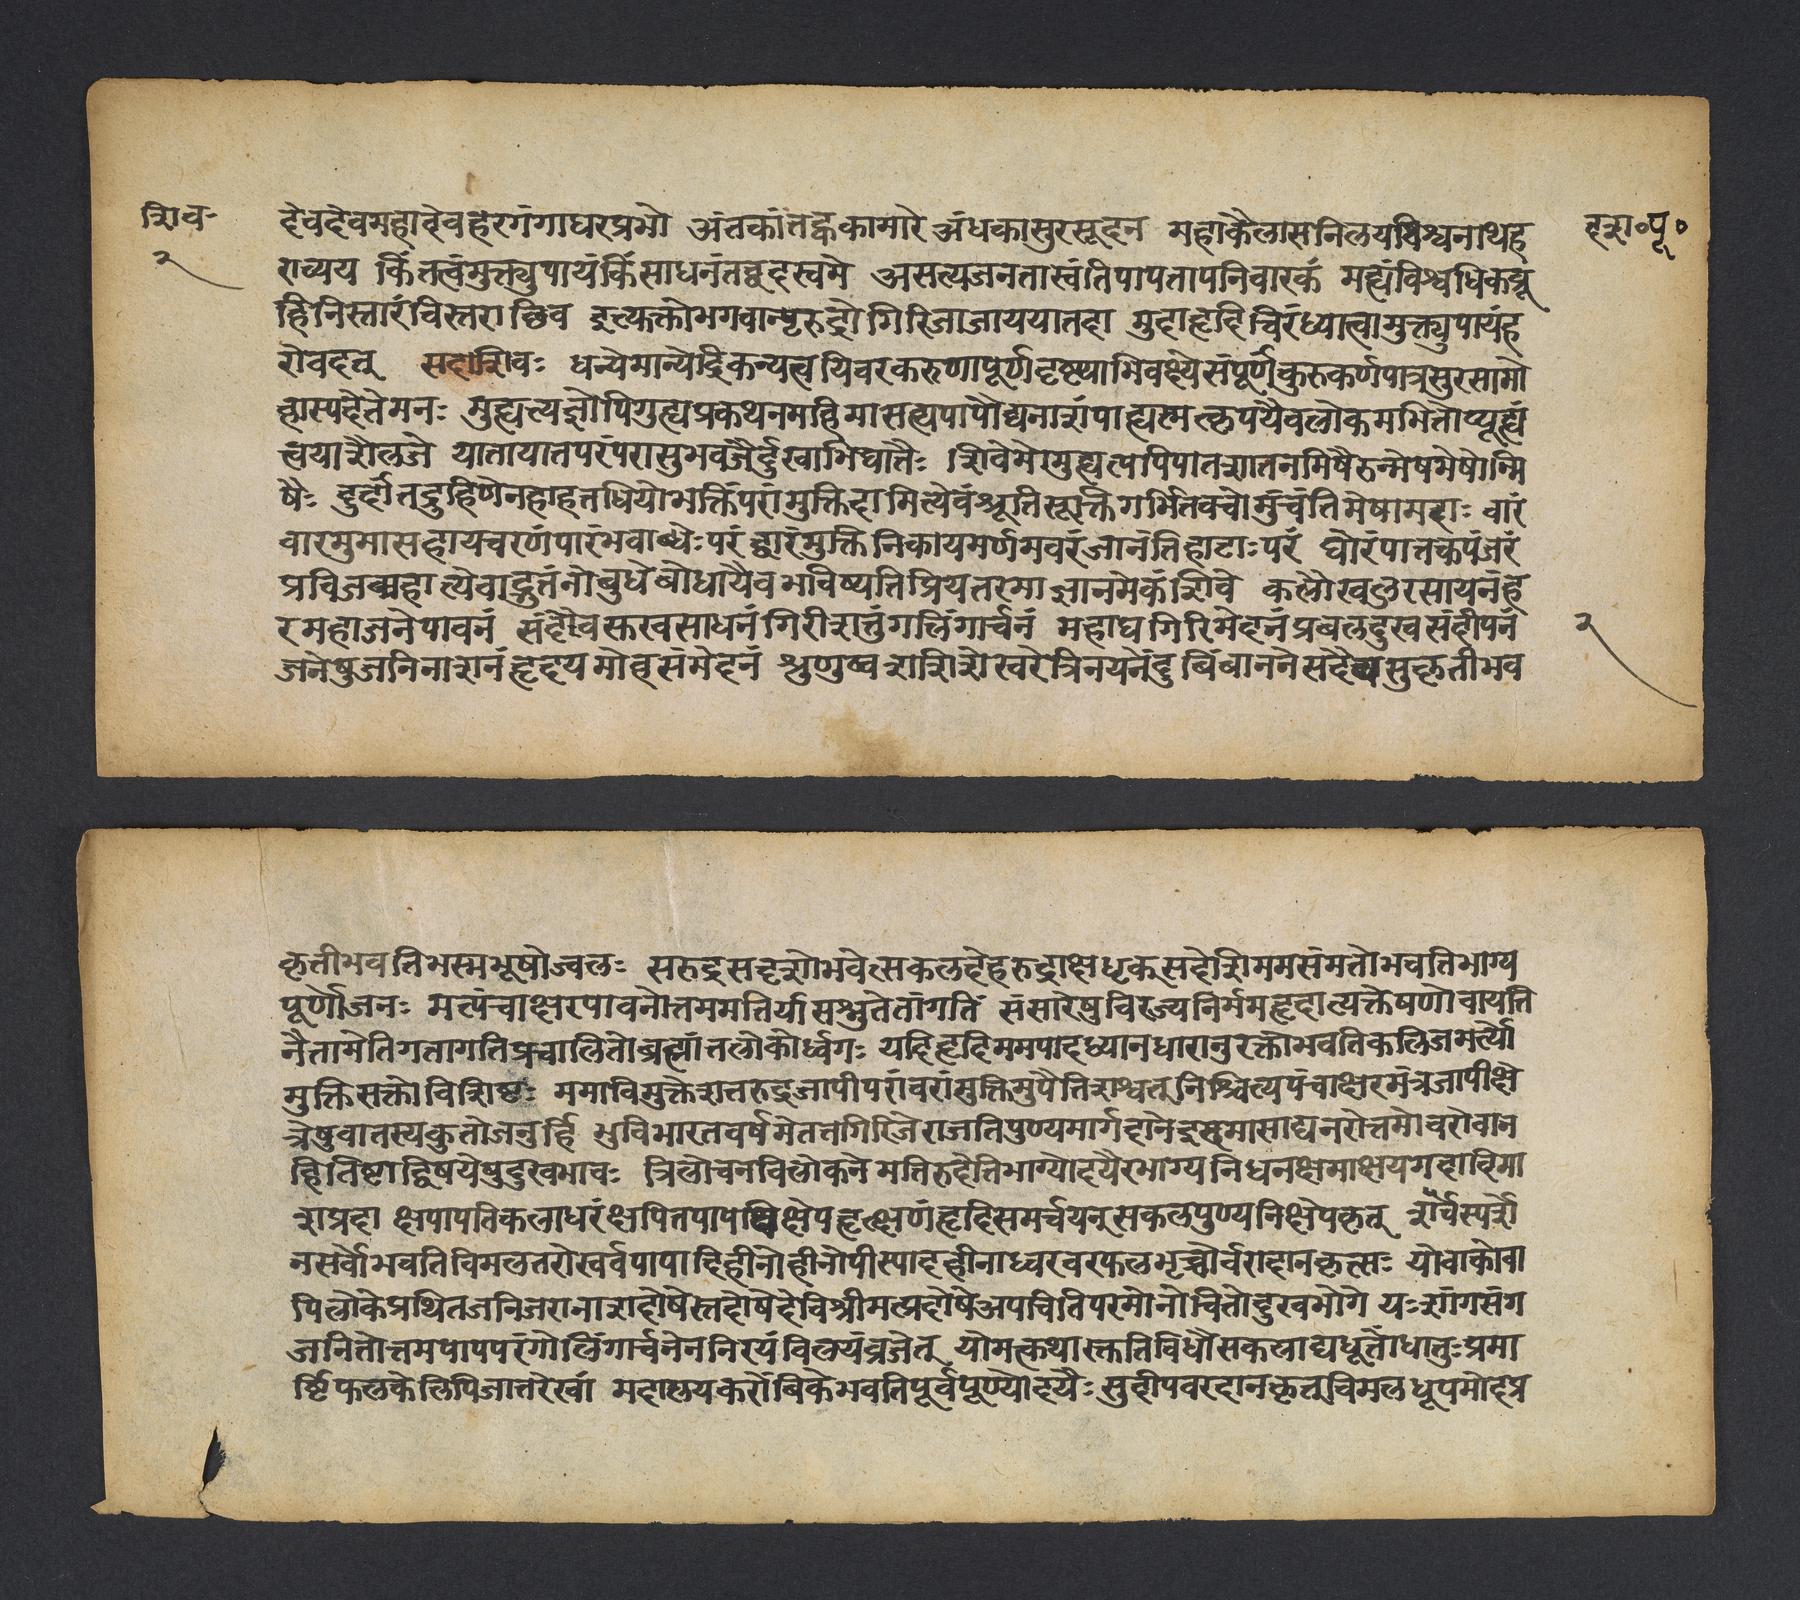 शिव-
दृशा०पू०
२
देवदेवमहादेवहरगंगाधरप्रभो अंतकांतककामारे अंधकासुरसूदन महाकैलासनिलयविश्वनाथह
राव्यय किंतत्वंमुक्त्युपायंकिंसाधनंतद्वदस्वमे असत्यजनतास्वंतिपापतापनिवारकं मह्यंविश्वधिकब्रू
हिनिस्तारंविस्तराछिव इत्युक्तोभगवान्पृरुद्रोगिरिजाजाययातदा गुहाहृदिचिरंध्यात्वामुक्त्युपायंह
रोवदत् सदाशिवः धन्येमान्येद्रिकन्यत्वयिवरकरुणापूर्णदृष्ट्याभिवक्ष्येसंपूर्णंकुरुकर्णपात्रसुरसामो
दास्पदेतेमनः गुह्यत्यज्ञोपिगुह्यप्रकथनमहिमासत्यपापौघनाशंपाह्यस्मत्कृपयैवलोकमभितोप्यूह्यं
त्वयाशैलजे यातायातपरंपरासुभवजैर्दुखाभिघातैः शिवेमेसुह्यत्यपिपातशातनमिषैरुन्मेषमेषोन्मि
षैः दुर्दांतद्रुहिणेनहाहतधियोभक्तिंपरांमुक्तिदामित्येवंश्रुतिसूक्तिगर्भितवचोमुंचंतिमेषामदाः वारं
वारमुमासहायचरणंपारंभवाब्धेःपरंद्वारंमुक्तिनिकायमर्णमवरंजानंतिहाटाःपरं घोरंपातकपंजरं
प्रविजन्महात्येवाद्भुतंनोबुधेबोधायैवभविष्यतिप्रियतरमाज्ञानमेकंशिवे कलौखलुरसायनंह
रमहाजनेपावनं संदैवस्तखसाधनंगिरीशत्तुंगलिंगार्चनं महाघगिरिमेदनंप्रबलदुखसंदीपनं
जनेषुजनिनाशनंहृदयमोहसंमेदनं श्रुणुष्वशशिशेखरेत्रिनयनेंदुबिंबाननेसदैवसुकृतीभव
२
कृतीभवतिभस्मभूषोज्वलः सरुद्रसदृशोभवेत्सकलदेहरुद्राक्षधृक्सदेशिममसंमतोभवतिभाग्य
पूर्णोजनः मत्पंचाक्षरपावनोत्तममतिर्यासश्नुतेतांगतिं संसारेषुविरज्यनिर्ममहृदात्यक्तेषणोवायति
नैतामेतिगतागतिप्रचालितोब्रह्मांतलोकोर्ध्वगः यदिहृदिममपादध्यानधारानुरक्तोभवतिकलिजमर्त्यो
मुक्तिसक्तोविशिष्टः ममाविमुक्तेशतरुद्रजापीपरांवरांमुक्तिमुपैतिशश्वत् निश्चित्यपंचाक्षरमंत्रजापीक्षे
त्रेषुवातस्यकुतोजनुर्हि भुविभारतवर्षमेततगिरिजेराजतिपुण्यमार्गदानेइसुमासाद्यनरोत्तमोवरोवान
हितिष्टाद्विषयेषुदुखभावः त्रिलोचनविलोकनेमतिरुदेतिभाग्योदयैरभाग्यनिधनक्षमाक्षयगदादिमा
शप्रदा क्षपापतिकलाधरंक्षपितपापविक्षेपहृत्क्षणंहृदिसमर्चयन्सकलपुण्यनिक्षेपकृत् शर्वस्पर्शे
नसर्वोभवतिविमलतरोखर्वपापादिहीनोहीनोपीस्पादहीनाध्वरवरफलभृच्चौर्वरादानकृत्सः योवाकोवा
पिलोकेप्रथितजनिजरानाशदोषेस्तदोषेदेविश्रीमत्प्रदोषेअपचितिपरमोनोचितोदुखभोगे यःशंगसंग
जनितोत्तमपापपरंगोलिंगार्चनेननिरयंविलयंव्रजेत् योमत्कथासक्ततिविधौसकलाद्यधूर्तोधातुःप्रमा
र्ष्टिफलकेलिपिजातरेखां महालयकरोंबिकेभवतिपूर्वपूण्योदयैःसुदीपवरदानकृत्विमलधूपमोदप्र